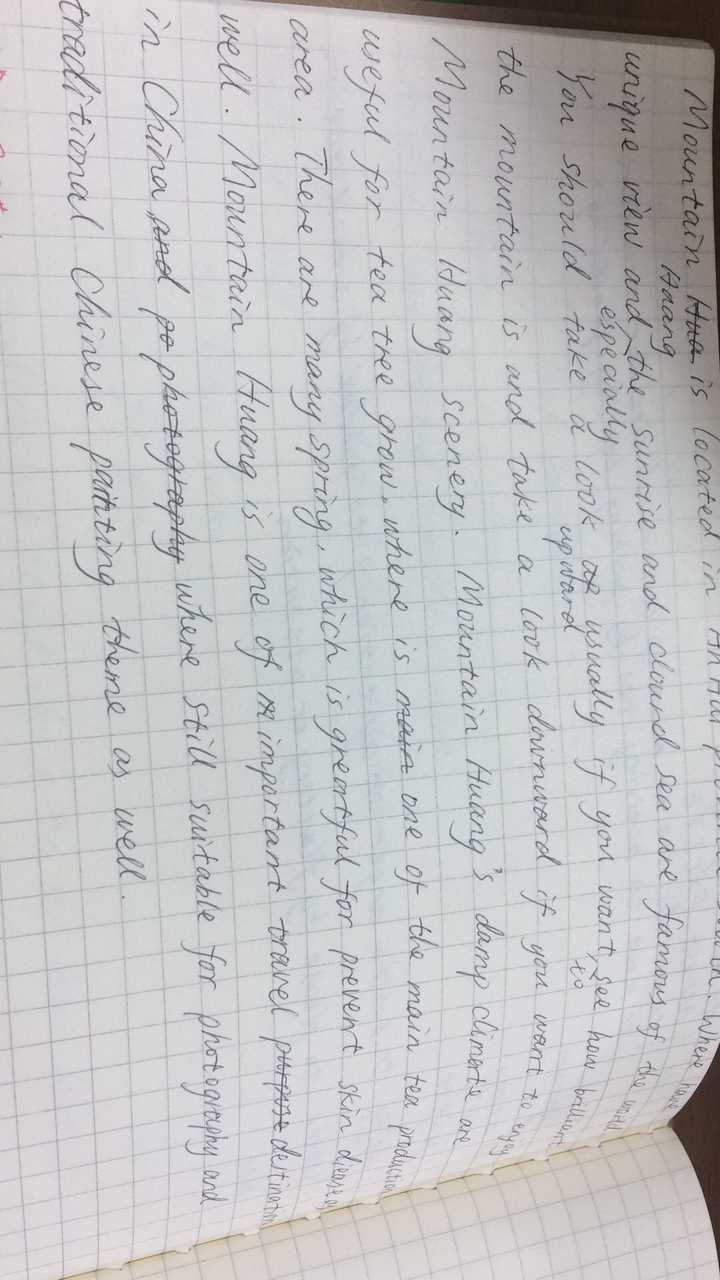 Mountain Hua is located in AnHui
Huang
unique view and the sunrise and clound sea are famous of the world
especially
You should take a look up usually if you want see how brilliant
upward
to
the mountain is and take a look downward if you want to enjoy
Mountain Huang scenery. Mountain Huang's damp climate are
useful for tea tree grow, where is main one of the main tea production
area. There are many spring, which is greatful for prevent skin disease as
well. Mountain Huang is one of important travel purpose destination
in China and photography where still suitable for photography and
traditional Chinese painting theme as well.